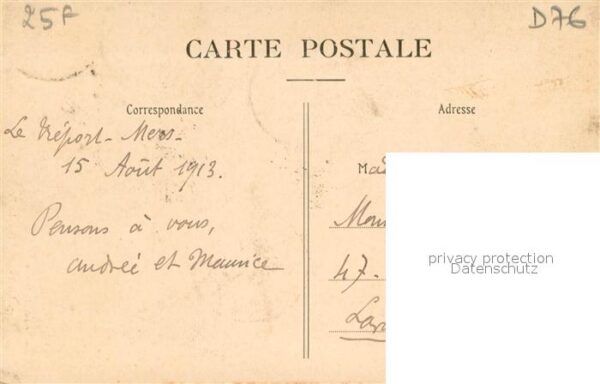 25F
D76
CARTE POSTALE
Correspondance
Adresse
Le Tréport - Mers -
15 Août 1913.
Pensons à vous,
Andrée et Maurice
Mad
Mons
47.
privacy protection
Datenschutz